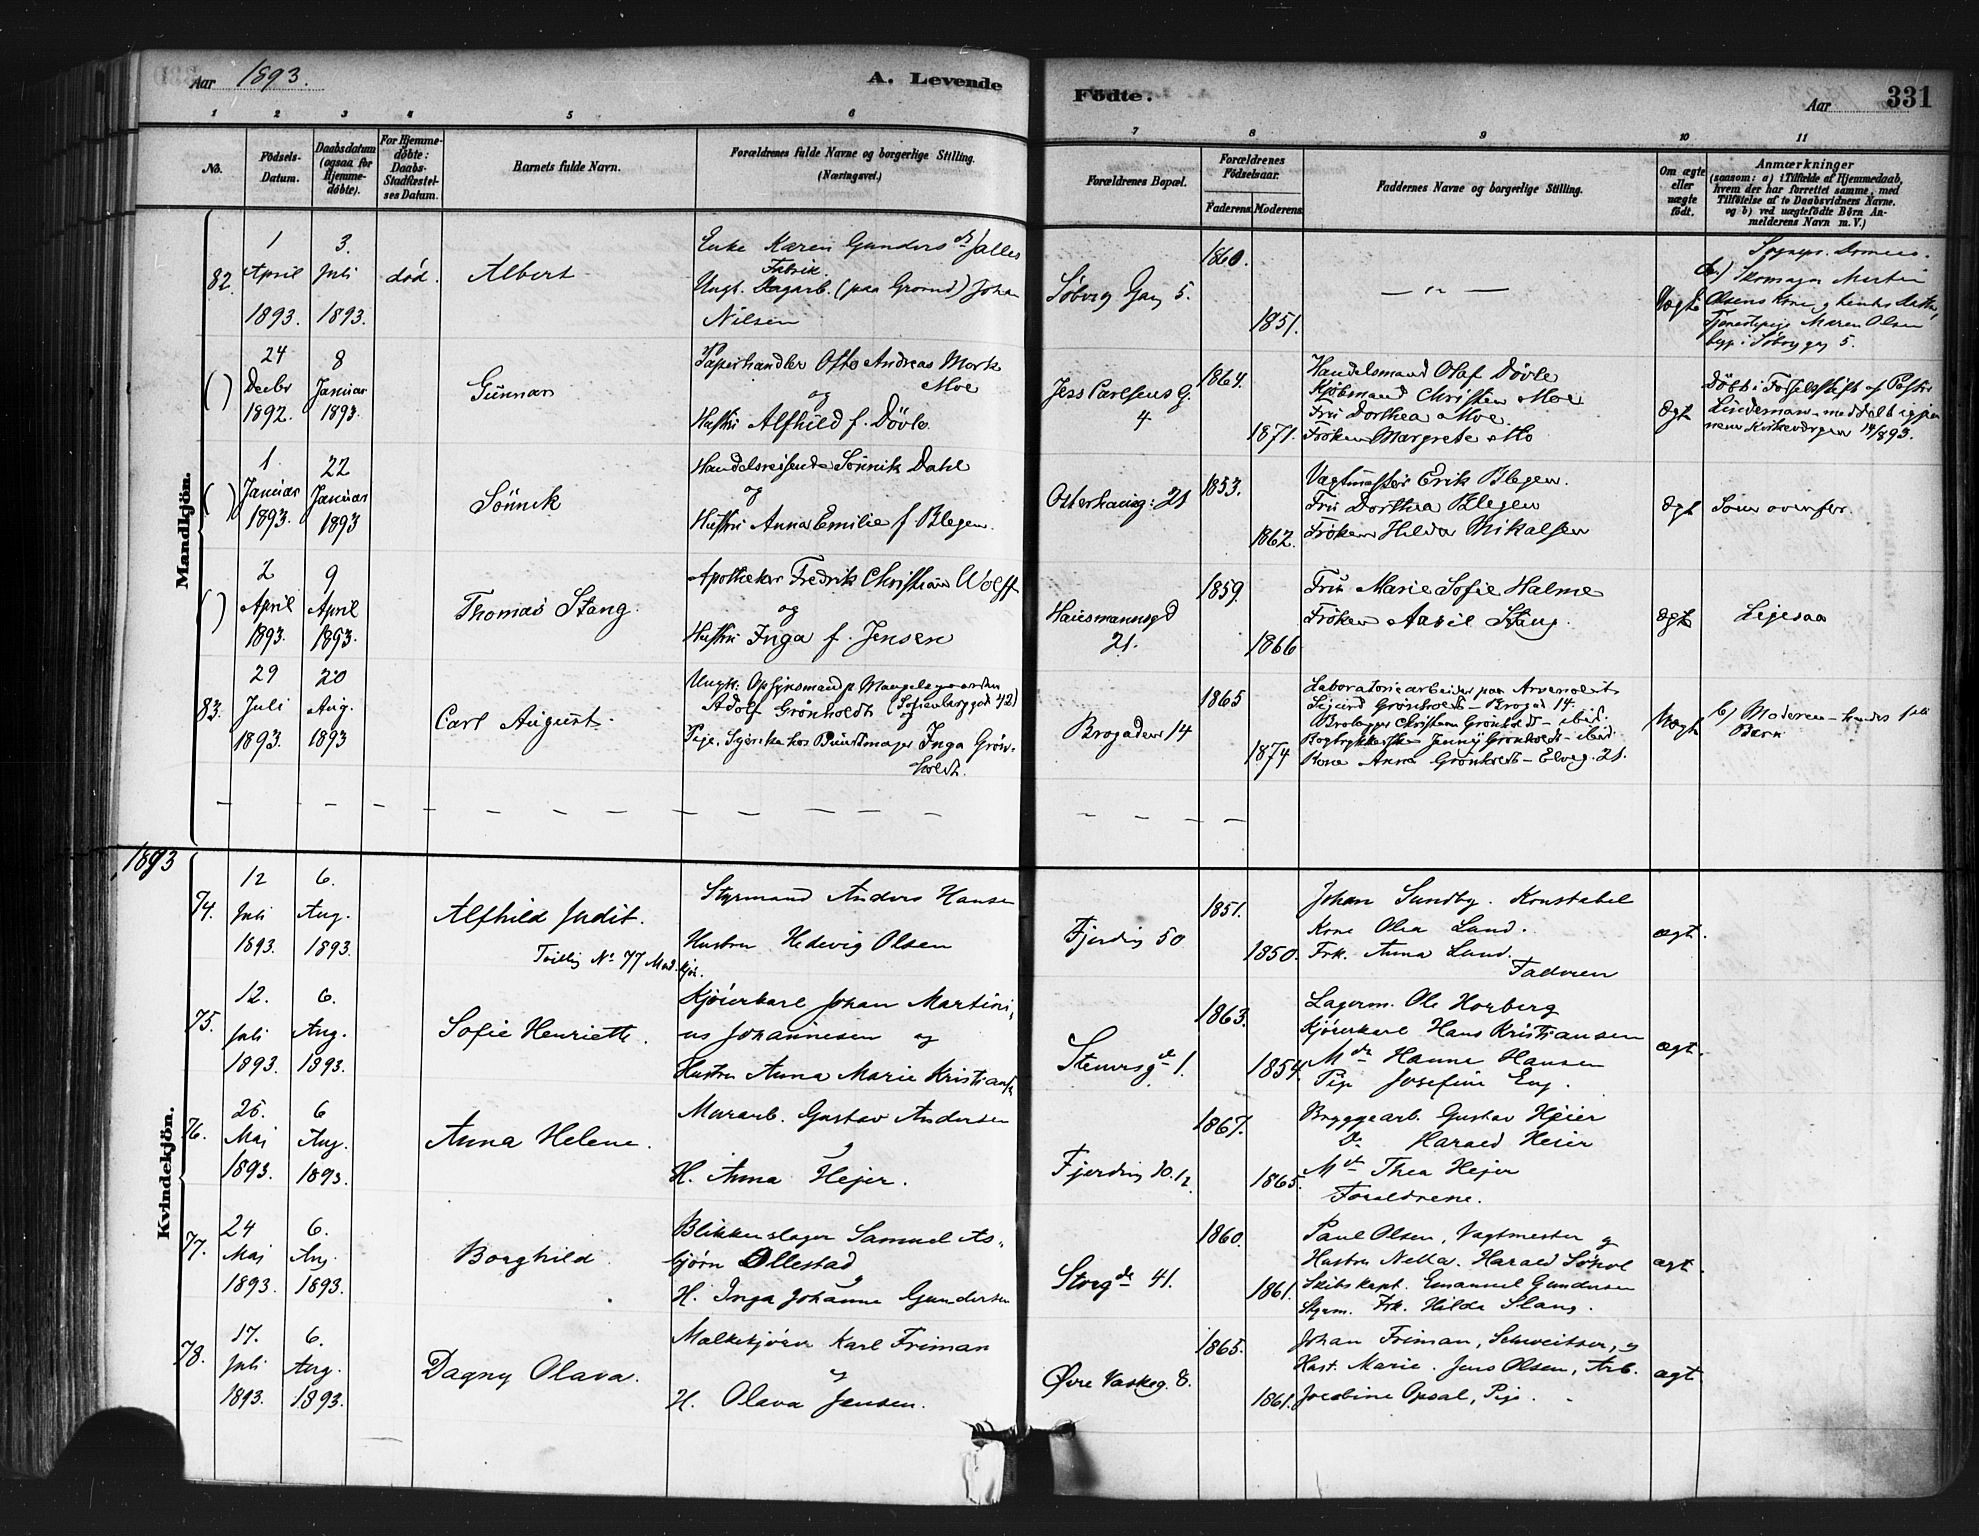 Aar 1893.
A. Levende
Födte.
Aar
331
1 2 3 4 5 6 7 8 9 10 11
No.
Födsels-Datum.
Daabsdatum (ogsaa for Hjemme-döbte).
For Hjemme-döbte: Daabs-Stadfæstel-ses Datum.
Barnets fulde Navn.
Forældrenes fulde Navne og borgerlige Stilling.
(Næringsvei.)
Forældrenes Bopæl.
Forældrenes Födselsaar.
Faderens Moderens
Faddernes Navne og borgerlige Stilling.
Om ægte eller uægte födt.
Anmærkninger
(saasom: a) i Tilfælde af Hjemmedaab, hvem der har forrettet samme, med Tilföielse af to Daabsvidners Navne. og b) ved uægtefödte Börn An-melderens Navn m. V.)
Mandkjön.
82.
1 April 1893.
3. Juli 1893.
död.
Albert
Enke Karen Gunders
Fabrik
Ungk. (paa Grorud) Johan
Nilsen
Søbvig Gang 5.
1860.
1851.
— „ —
Uægte
b.) Skomager Martin
Olsens Kone
Tjenestepige Maren Olsen
( )
24 Decbr 1892.
8 Januar 1893.
Gunnar
Papirhandler Otto Andreas Mork
Moe
og
Hustru Alfhild f. Døvle
Jess Carlsens G.
4
1864.
1871.
Handelsmand Olaf Døvle
Kjøbmand Christian Moe
Fru Dorthea Moe.
Frøken Margrete Mo
Ægte
Döbt i Fødselsstift. af Pastor
Lindeman
( )
1 Januar 1893.
22 Januar 1893
Sönnik
Handelsreisende Sönnik Dahl
og
Hustru Anna Emilie f Blegen.
Osterhausg: 21
1853.
1862.
Vagtmester Erik Blegen.
Fru Dorthea Blegen
Frøken Hilda Mikalsen
Ægte
Som ovenfor.
( )
2 April 1893.
9 April 1893.
Thomas Stang.
Apotheker Fredrik Christian Wolff
og
Hustru Inga f. Jensen
Hausmannsgd
21.
1859.
1866
Fru Marie Sofie Halme
Frøken Aasil Stang.
Ægte
Ligesaa
83.
29 Juli 1893.
20 Aug. 1893
Carl August.
Ungk: Opsynsmand p. Mangelsgaarden
Adolf Grönholdt (Sofienberggad 42)
og
Pige, Syerske hos Buntmager Inga Grön-
holdt.
Brogaden 14
1865
1874
Laboratoriearbeider paa
Sigurd Grönholdt – Brogad 14.
Brolægger Christian Grönholdt – ibid.
Bogtrykkerske Jenny Gronholdt – ibid
Kone Anna Grönholdt – Elveg. 21.
Uægte
b) Moderen – hendes 1ste
Barn
1893
Kvindekjön.
74.
12 Juli 1893.
6. Aug. 1893.
Alfhild Judit.
Tvilling No 77 Mandkjøn.
Styrmand Anders Hansen
Hustru Hedevig Olsen
Fjerding 50
1851.
1850.
Johan Sundby. Konstabel
Kone Olea Lund.
Frk. Anna Lund.
Faderen
ægt.
75.
12. Juli 1893.
6. Aug. 1893.
Sofie Henriette.
Kjørerkarl Johan Martini-
us Johannesen og
Hustru Anna Marie Kristians
Stenersgd 1.
1863.
1854.
Lagerm. Ole Horberg
Kjørerkarl Hans Kristiansen
Md Hanne Hansen
Pige Josefine Eng.
ægt.
76.
26. Maj 1893.
6 Aug. 1893.
Anna Helene.
Murarb. Gustav Andersen
og
H. Anna Hejer.
Fjerding 10.12
1867.
1865.
Bryggearb. Gustav Hejer
Do Harald Hejer
Md Thea Hejer
Forældrene.
77.
24 Maj 1893.
6. Aug. 1893.
Borghild.
Blikkenslager Samuel As-
bjørn Ollestad
og
H. Inga Johanne Gundersen
Storgd 41.
1860.
1861.
Paul Olsen, Vagtmester og
Hustru Netta. Harald Sörvel
Skibskapt. Emanuel Gundersen
Styrm. Frk. Hilda Slang.
ægt.
78.
17. Juli 1893.
6. Aug. 1893.
Dagny Olava.
Malkekjører Karl Friman
og
H. Olava Jensen.
Øvre Vaskeg. 8.
1865.
1861.
Johan Friman, Schweitser, og
Hust. Marie. Jens Olsen, Arb.
Jocobine Opsal, Pige.
ægt